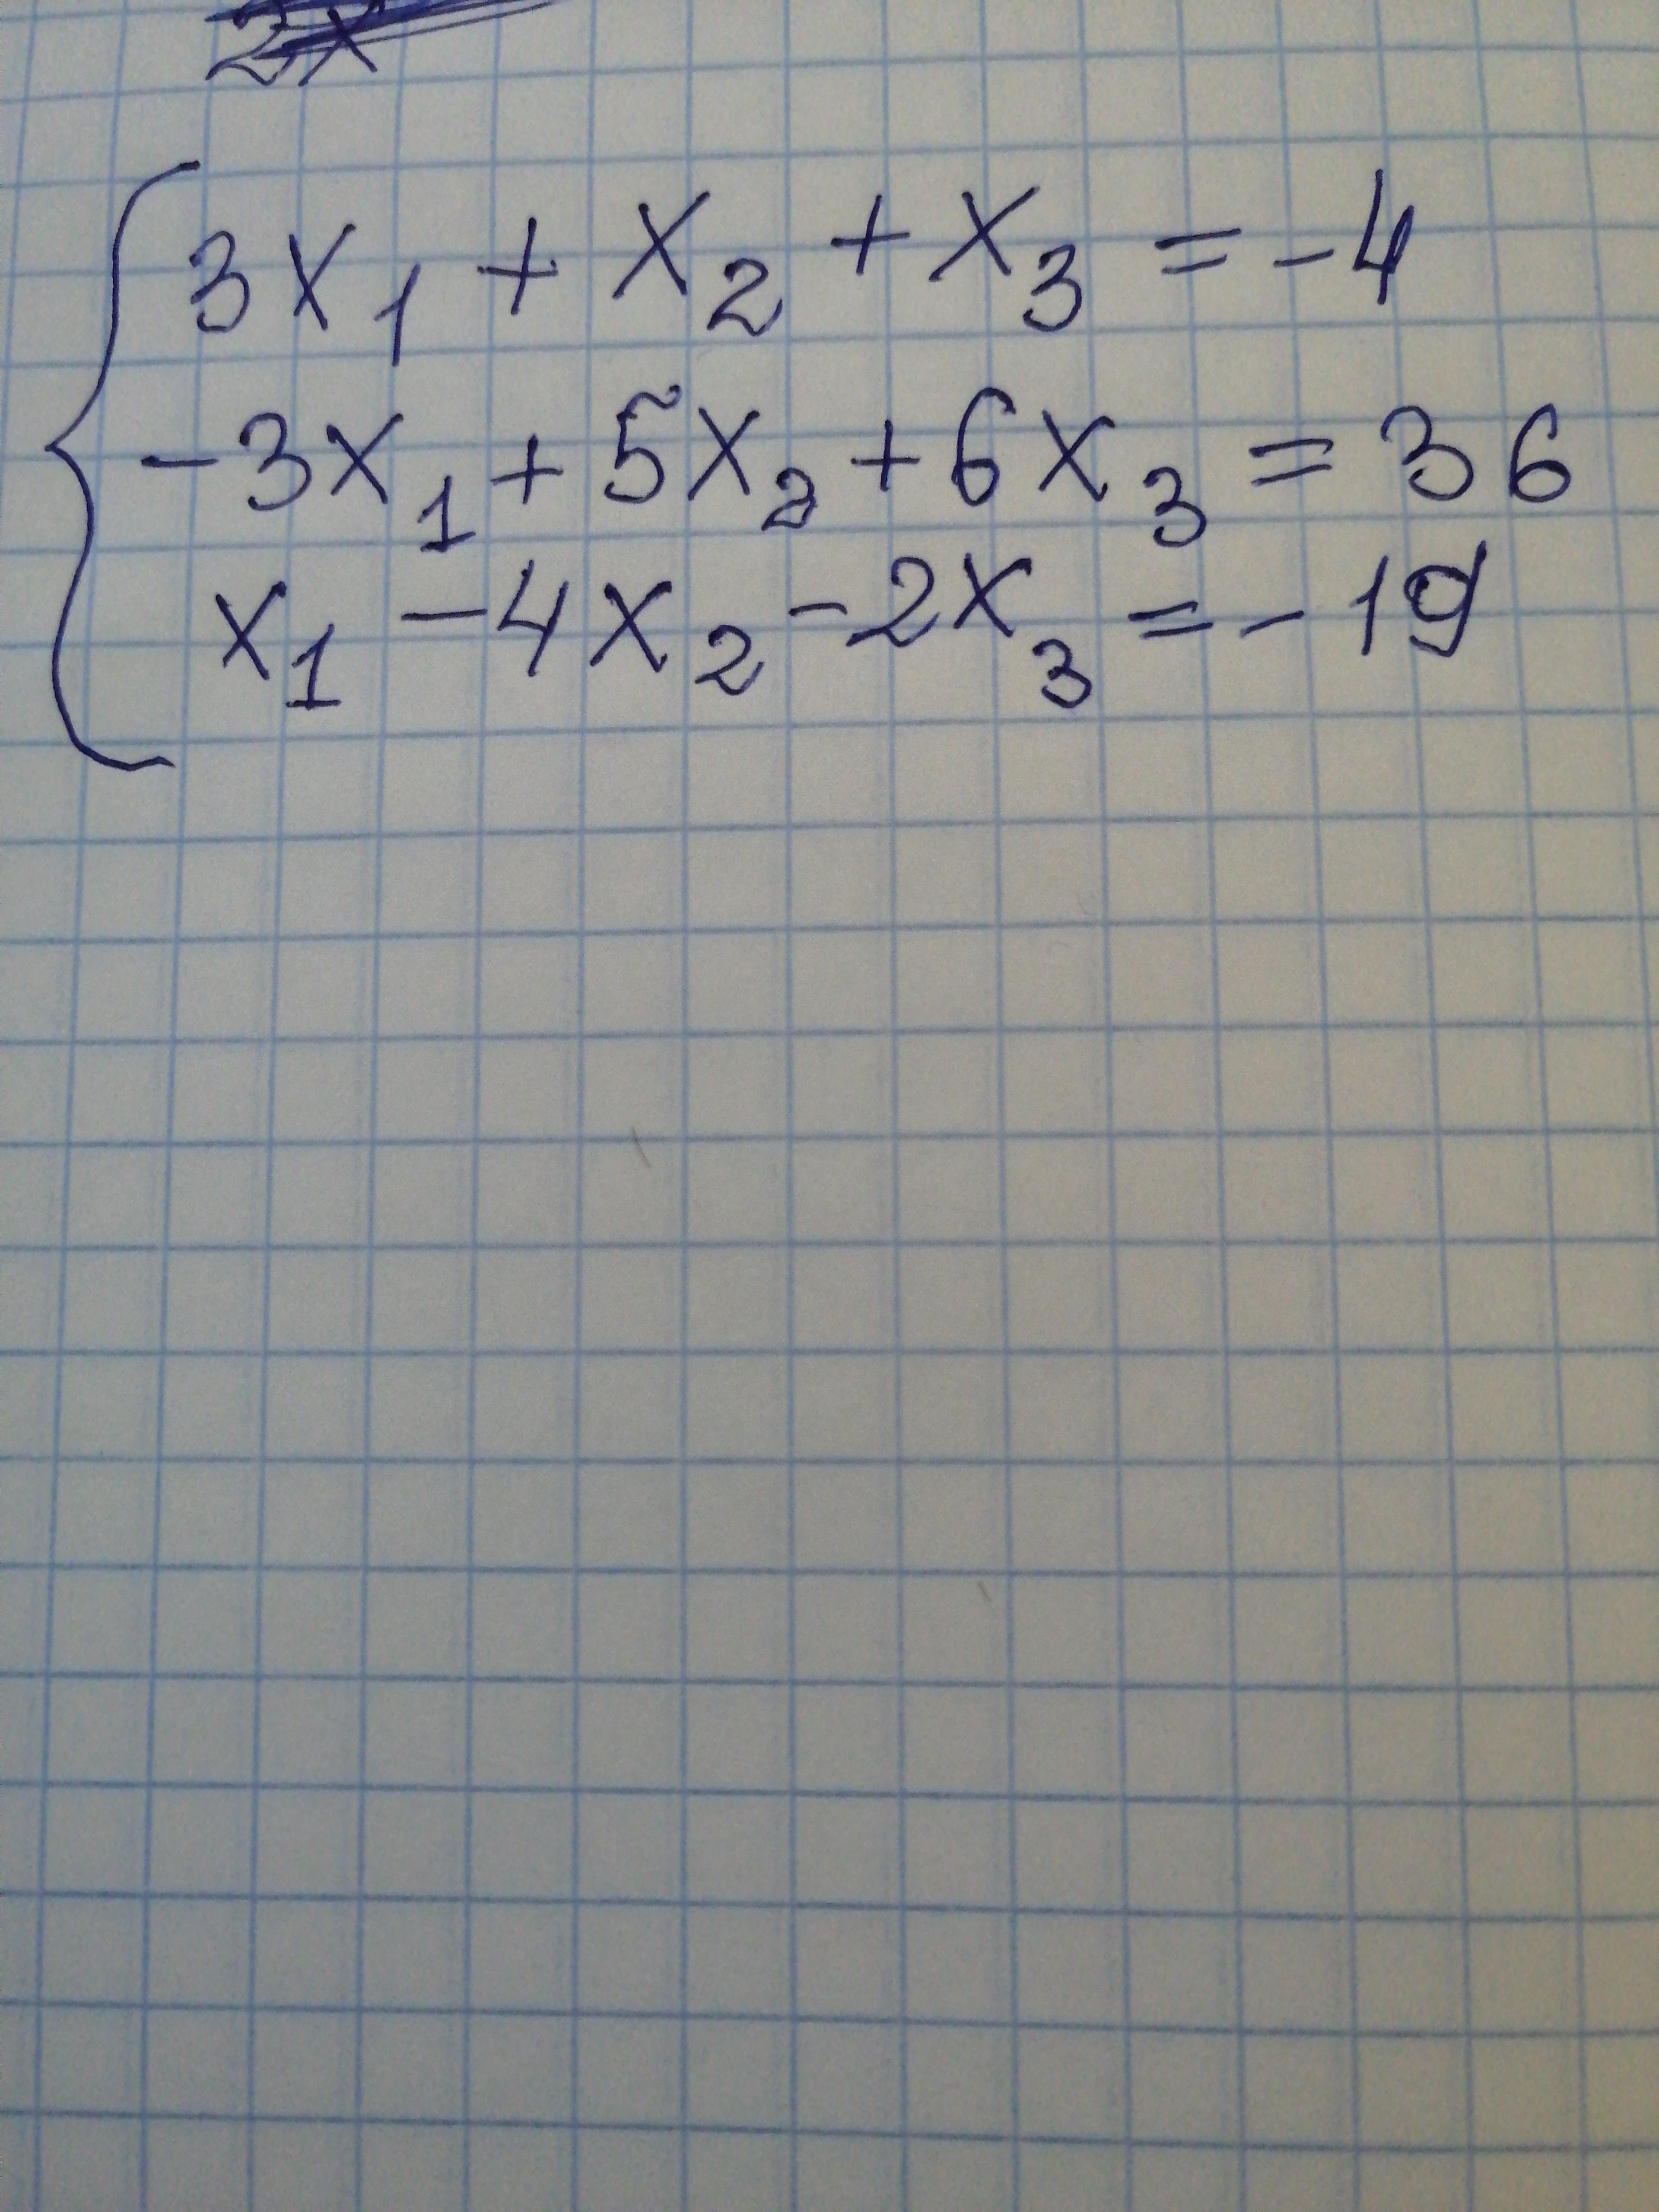 2x
3x₁ + x₂ + x₃ = -4
-3x₁ + 5x₂ + 6x₃ = 36
x₁ - 4x₂ - 2x₃ = -19